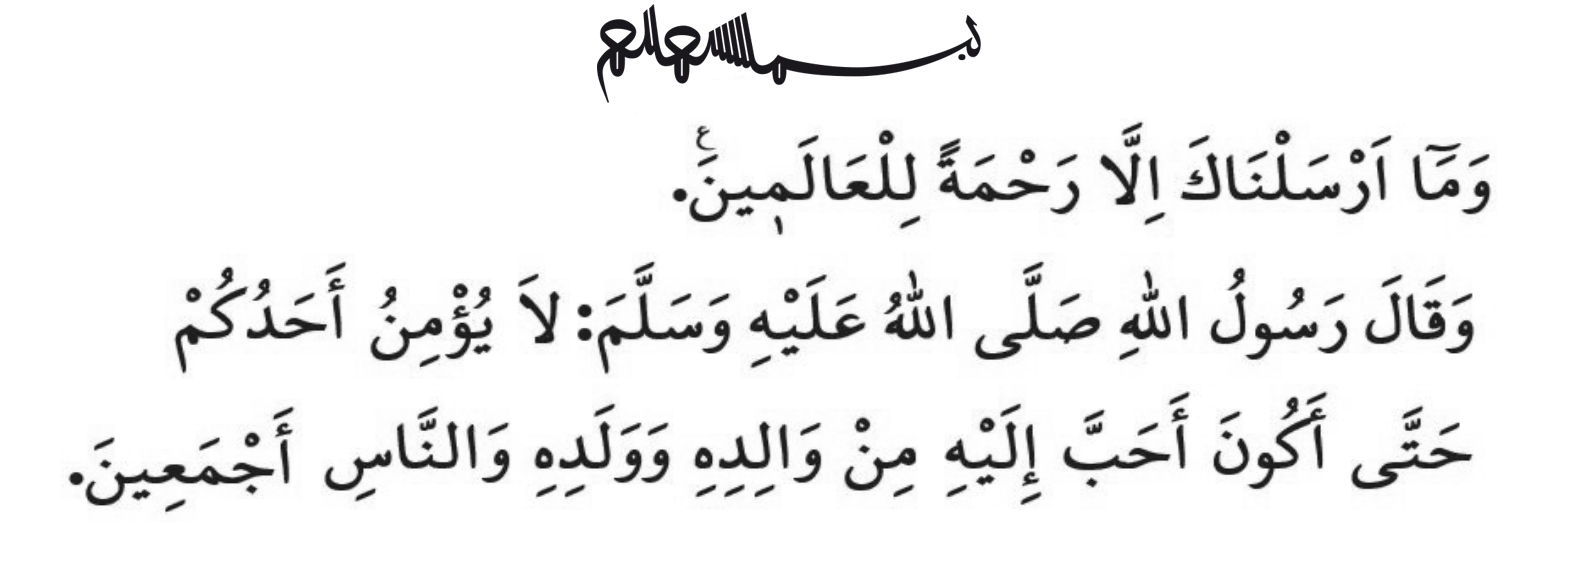 بسم الله الرحمن الرحيم
وَمَٓا اَرْسَلْنَاكَ اِلَّا رَحْمَةً لِلْعَالَمٖينَۚ.
وَقَالَ رَسُولُ اللّٰهِ صَلَّى اللّٰهُ عَلَيْهِ وَسَلَّمَ: لاَ يُؤْمِنُ أَحَدُكُمْ
حَتَّى أَكُونَ أَحَبَّ إِلَيْهِ مِنْ وَالِدِهِ وَوَلَدِهِ وَالنَّاسِ أَجْمَعِينَ.